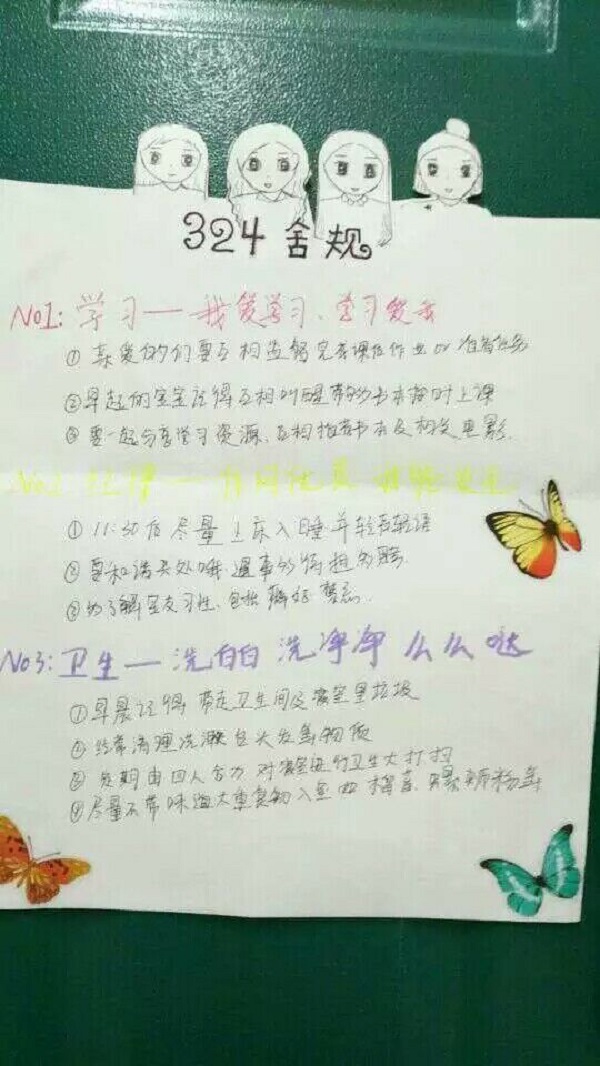 324舍规
No1: 学习——我爱学习、学习爱我
①亲爱的们要互相监督完成课后作业or准备任务
②早起的宝宝记得互相叫醒带好书本按时上课
③要一起分享学习资源、互相推荐书本及相关电影.
No2 纪律——
①11:30后尽量上床入睡并轻声轻语
②要和谐共处哦,遇事
③多了解室友习性、包括
No3: 卫生——洗白白 洗净净 么么哒
①早晨记得 带走卫生间及寝室里垃圾
②经常清理洗漱台头发等物质
③ 由四人合力 对寝室进行卫生大打扫
④尽量不带味道太重食物入室 如 榴莲、螺蛳粉等